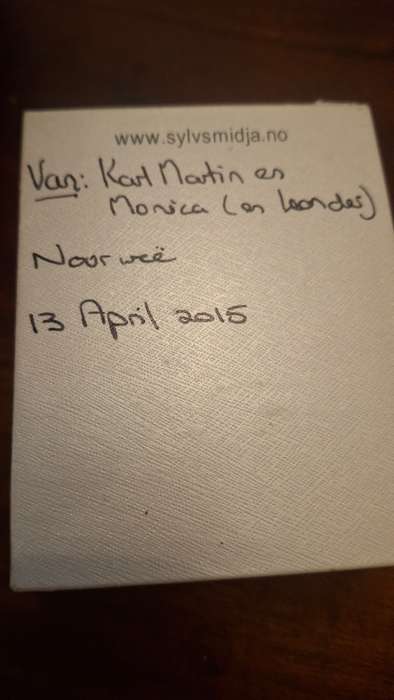 www.sylvsmidja.no
Van: Karl Martin en
Monica (en Leander)
Noorweë
13 April 2015